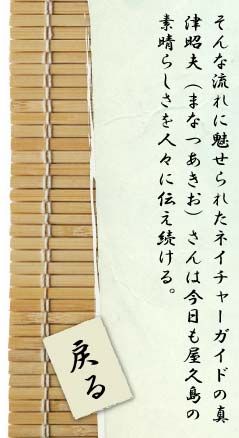 そんな流れに魅せられたネイチャーガイドの真
津昭夫（まなつあきお）さんは今日も屋久島の
素晴らしさを人々に伝え続ける。
戻る